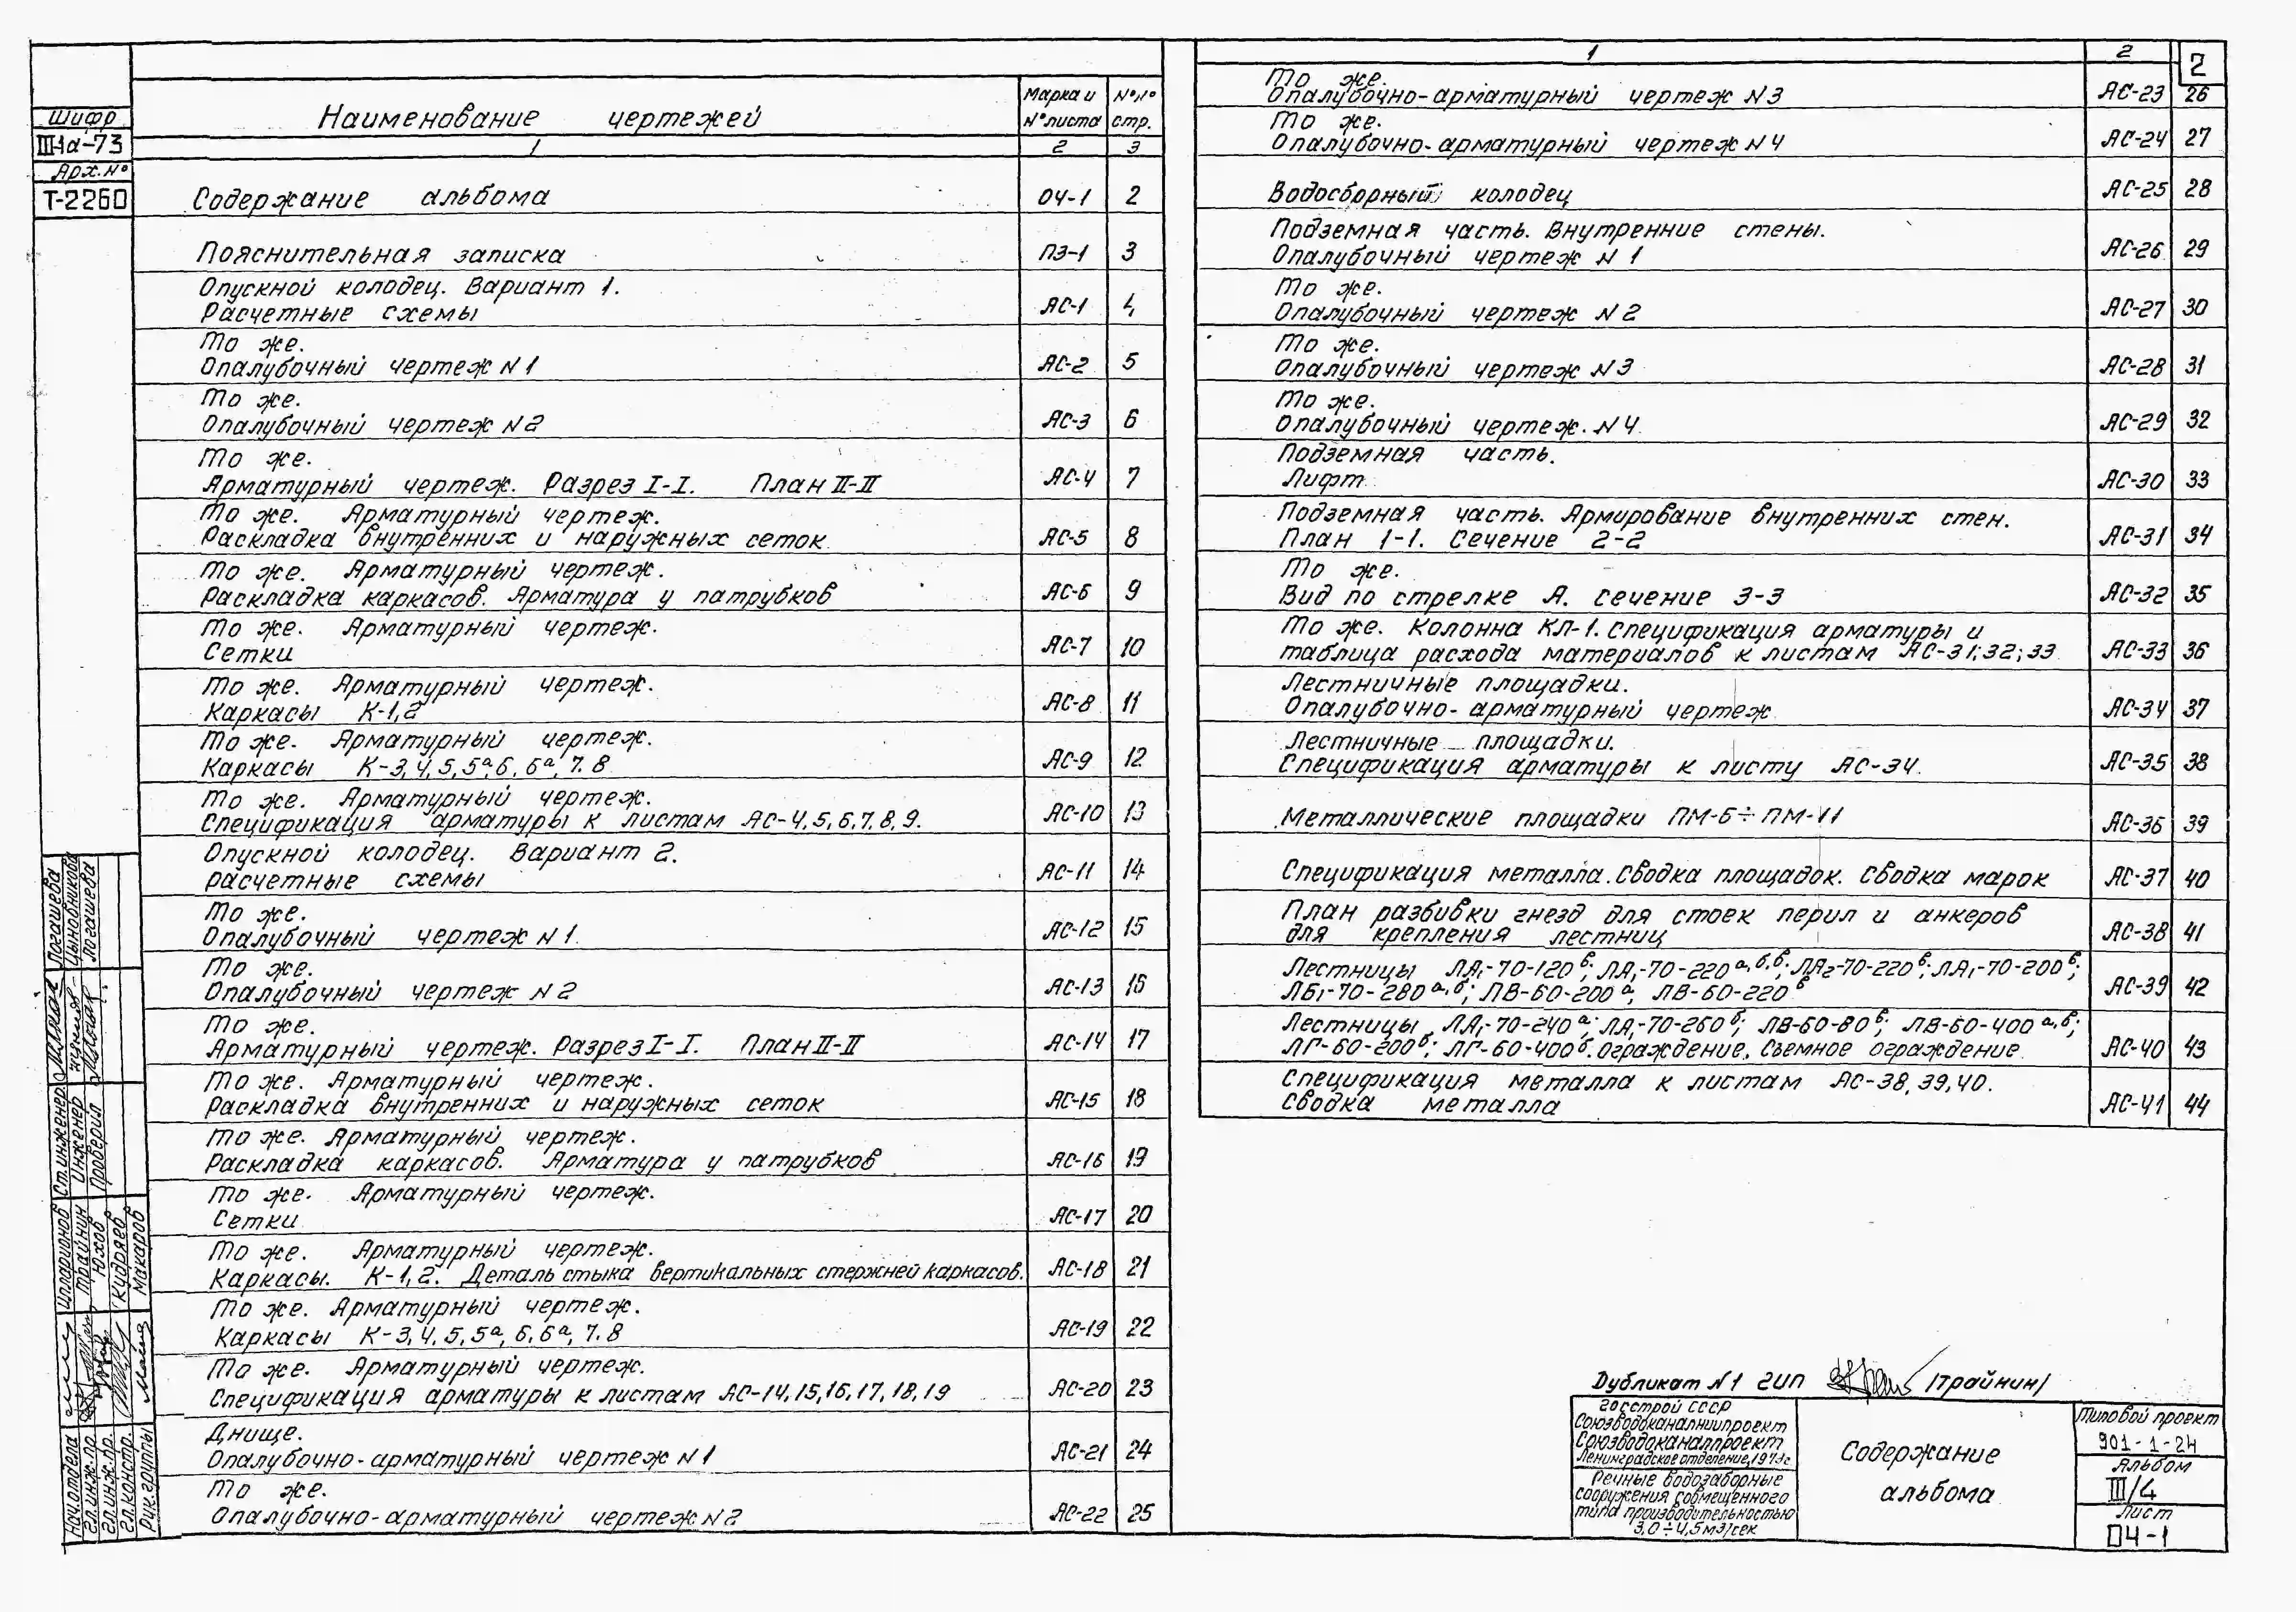 Шифр
III-1а-73
Арх. №
Т-2260
Наименование чертежей
Марка и № листа
№№ стр.
1 2 3
Содержание альбома ОЧ-1 2
Пояснительная записка ПЗ-1 3
Опускной колодец. Вариант 1.
Расчетные схемы АС-1 4
То же.
Опалубочный чертеж N1 АС-2 5
То же.
Опалубочный чертеж N2 АС-3 6
То же.
Арматурный чертеж. Разрез I-I. План II-II АС-4 7
То же. Арматурный чертеж.
Раскладка внутренних и наружных сеток АС-5 8
То же. Арматурный чертеж.
Раскладка каркасов. Арматура у патрубков АС-6 9
То же. Арматурный чертеж.
Сетки АС-7 10
То же. Арматурный чертеж.
Каркасы К-1,2 АС-8 11
То же. Арматурный чертеж.
Каркасы К-3,4,5,5а,6,6а,7.8 АС-9 12
То же. Арматурный чертеж.
Спецификация арматуры к листам АС-4,5,6,7,8,9. АС-10 13
Опускной колодец. Вариант 2.
расчетные схемы АС-11 14
То же.
Опалубочный чертеж N1. АС-12 15
То же.
Опалубочный чертеж N2 АС-13 16
То же.
Арматурный чертеж. Разрез I-I. План II-II АС-14 17
То же. Арматурный чертеж.
Раскладка внутренних и наружных сеток АС-15 18
То же. Арматурный чертеж.
Раскладка каркасов. Арматура у патрубков АС-16 19
То же. Арматурный чертеж.
Сетки АС-17 20
То же. Арматурный чертеж.
Каркасы. К-1,2. Деталь стыка вертикальных стержней каркасов. АС-18 21
То же. Арматурный чертеж.
Каркасы К-3,4,5,5а,6,6а,7.8 АС-19 22
То же. Арматурный чертеж.
Спецификация арматуры к листам АС-14,15,16,17,18,19 АС-20 23
Днище.
Опалубочно-арматурный чертеж N1 АС-21 24
То же.
Опалубочно-арматурный чертеж N2 АС-22 25
1 2
2
То же.
Опалубочно-арматурный чертеж N3 АС-23 26
То же.
Опалубочно-арматурный чертеж N4 АС-24 27
Водосборный колодец АС-25 28
Подземная часть. Внутренние стены.
Опалубочный чертеж N1 АС-26 29
То же.
Опалубочный чертеж N2 АС-27 30
То же.
Опалубочный чертеж N3 АС-28 31
То же.
Опалубочный чертеж. N4 АС-29 32
Подземная часть.
Лифт АС-30 33
Подземная часть. Армирование внутренних стен.
План 1-1. Сечение 2-2 АС-31 34
То же.
Вид по стрелке А. Сечение 3-3 АС-32 35
То же. Колонна КЛ-1. Спецификация арматуры и
таблица расхода материалов к листам АС-31;32;33 АС-33 36
Лестничные площадки.
Опалубочно-арматурный чертеж АС-34 37
Лестничные площадки.
Спецификация арматуры к листу АС-34. АС-35 38
Металлические площадки ПМ-6÷ПМ-11 АС-36 39
Спецификация металла. Сводка площадок. Сводка марок АС-37 40
План разбивки гнезд для стоек перил и анкеров
для крепления лестниц АС-38 41
Лестницы ЛА1-70-120в; ЛА1-70-220а,б,в; ЛА2-70-220в; ЛА1-70-200в;
ЛБ1-70-280а,б; ЛВ-60-200а, ЛВ-60-220в АС-39 42
Лестницы ЛА1-70-240а; ЛА1-70-260б; ЛВ-60-80в; ЛВ-60-400а,в;
ЛГ-60-200б; ЛГ-60-400б. Ограждение. Съемное ограждение АС-40 43
Спецификация металла к листам АС-38,39,40.
Сводка металла АС-41 44
Логашева
Цыновникова
Логашева
Ст.инженер
Инженер
Проверил
Илларионов
Трайнин
Юхов
Кудряев
Макаров
Нач.отдела
Гл.инж.пр.
Гл.инж.пр.
Гл.констр.
Рук.группы
Дубликат N1 ГИП /Трайнин/
Госстрой СССР
Союзводоканалниипроект
Союзводоканалпроект
Ленинградское отделение, 1973г
Речные водозаборные
сооружения совмещенного
типа производительностью
3,0÷4,5м3/сек
Содержание
альбома
Типовой проект
901-1-24
Альбом
III/4
Лист
ОЧ-1